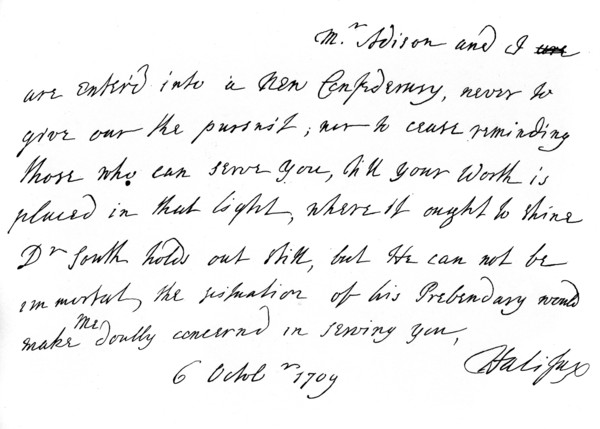 Mr Adison and I are
are enter'd into a New Confederasy, never to
give our the pursuit; nor to cease reminding
those who can serve you, till your Worth is
placed in that light, where it ought to shine
Dr South holds out still, but He can not be
immortal, the situation of his Prebendary would
make me doubly concernd in serving you,
6 Octobr 1709
Halifax